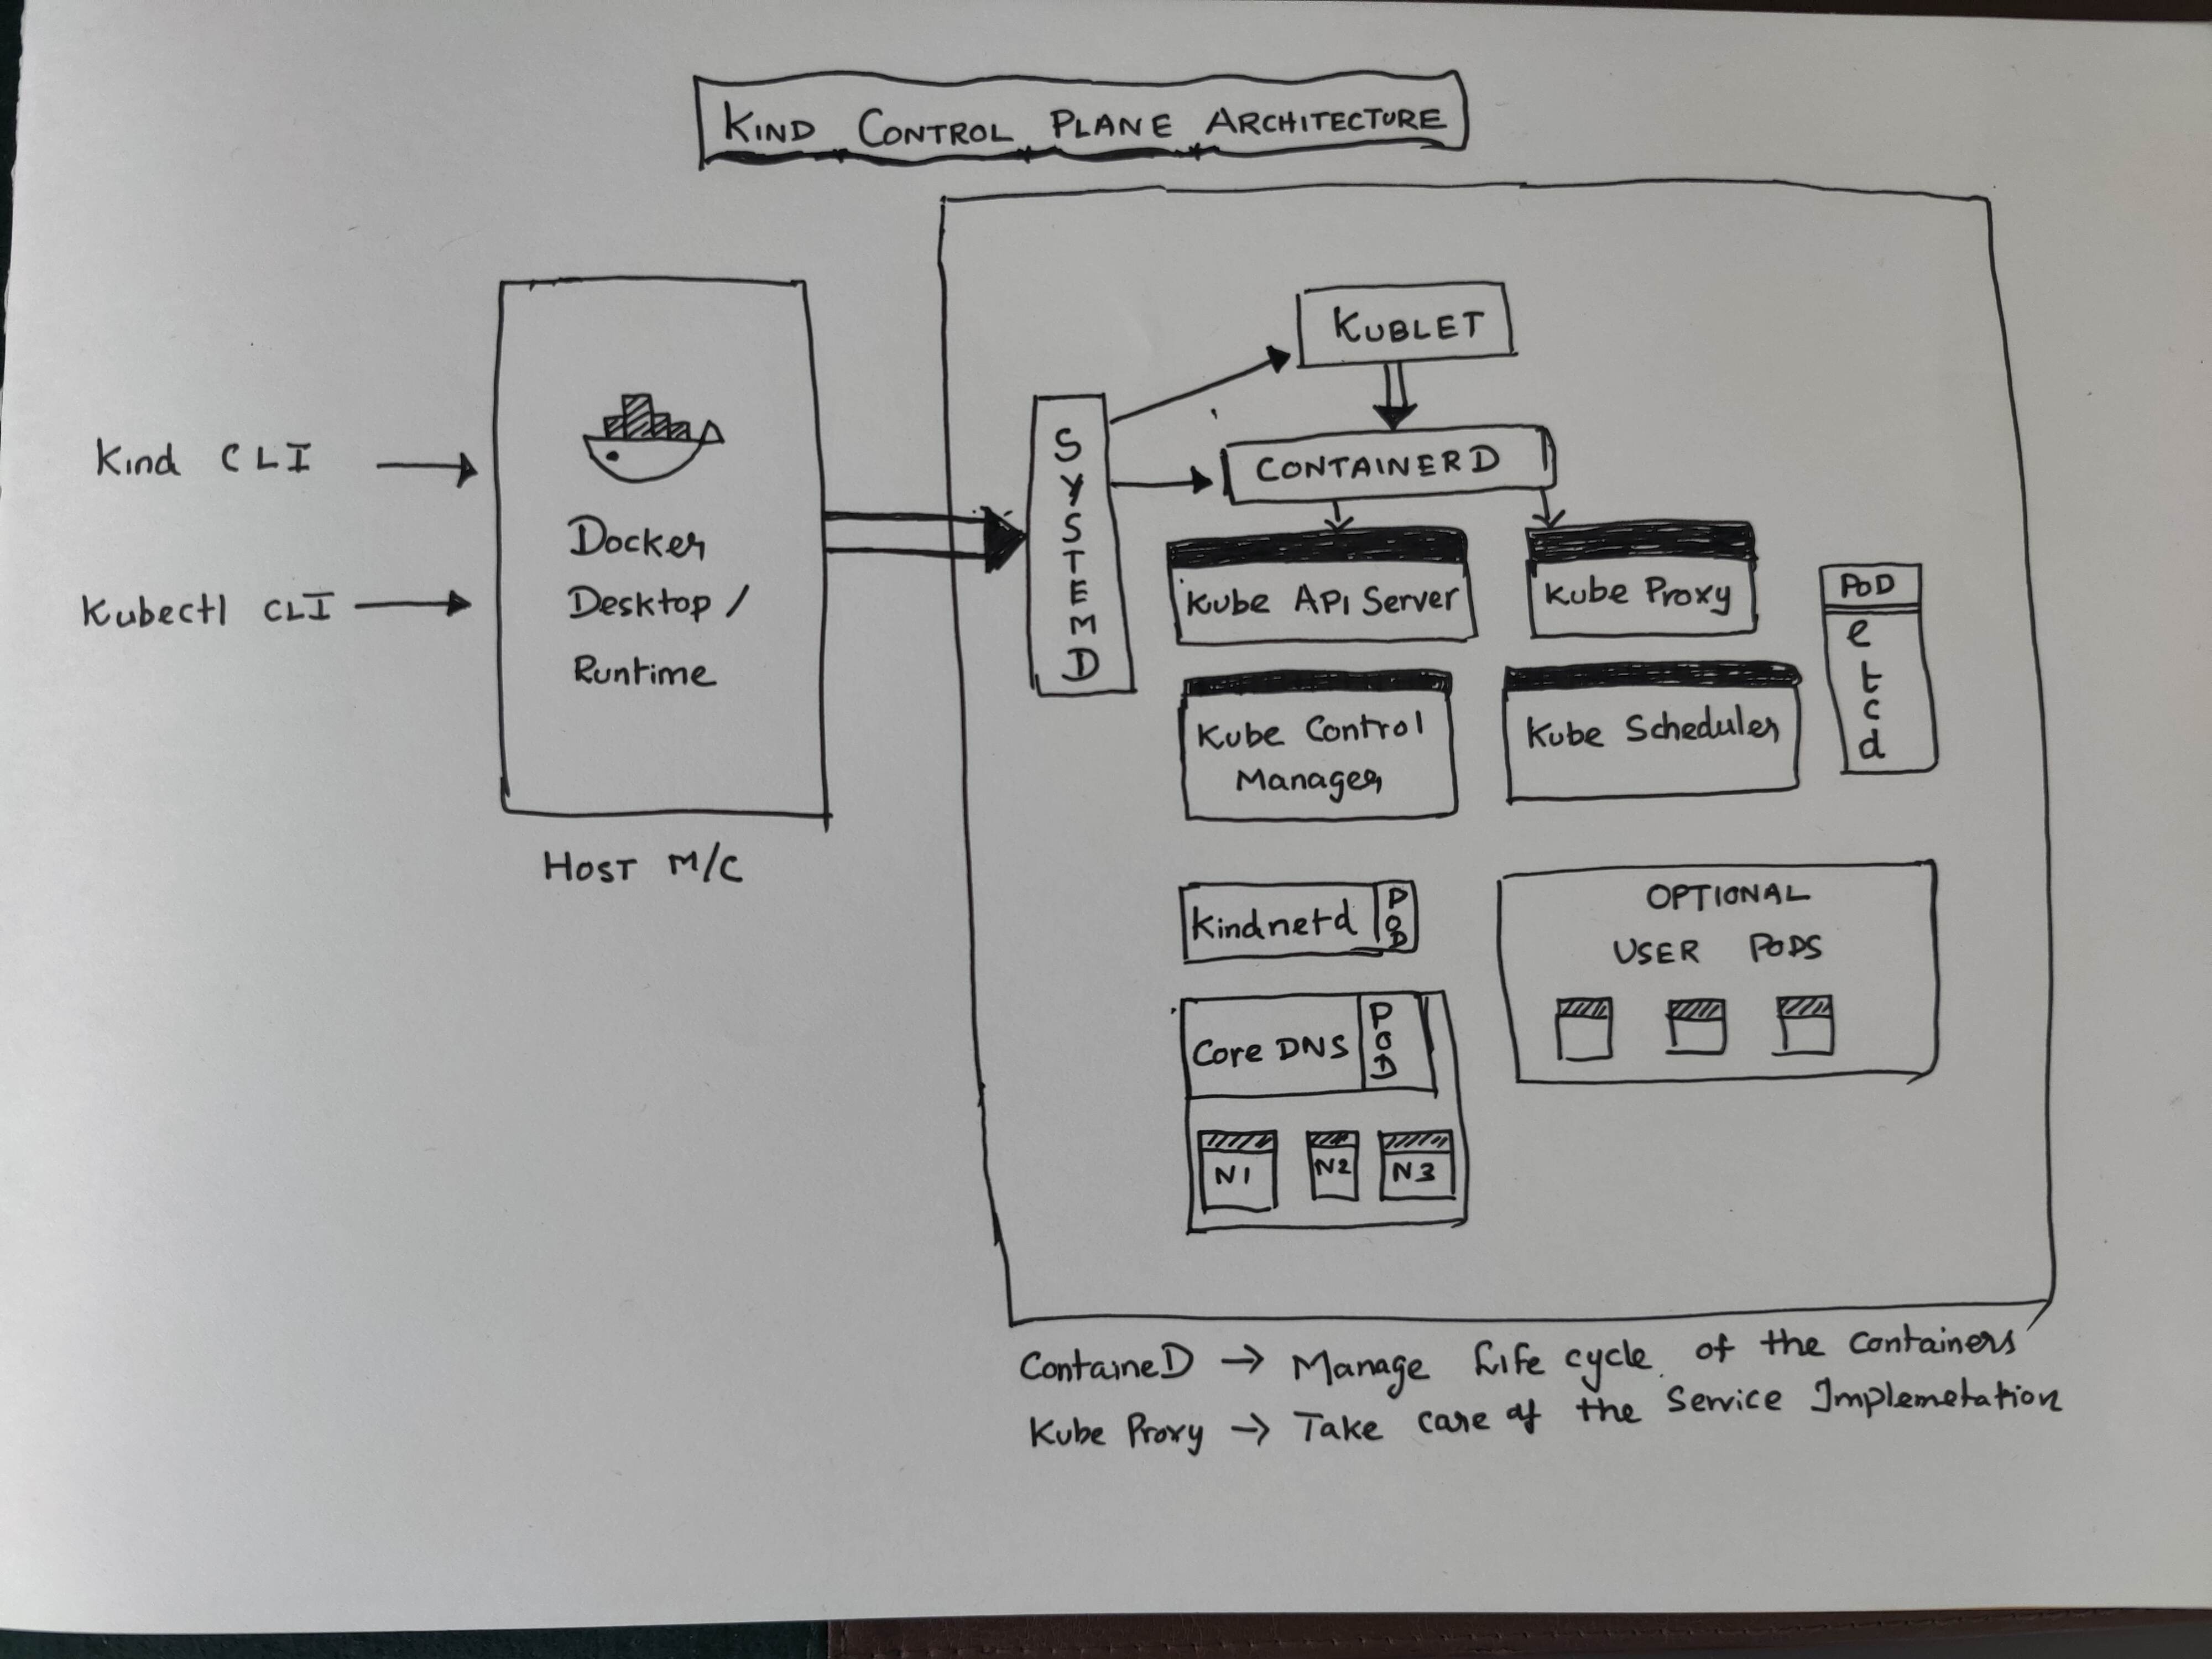 KIND CONTROL PLANE ARCHITECTURE
Kind CLI
Kubectl CLI
Docker
Desktop /
Runtime
HOST M/C
SYSTEMD
KUBLET
CONTAINERD
Kube API Server
Kube Proxy
Kube Control
Manager
Kube Scheduler
POD
etcd
Kindnetd POD
Core DNS POD
N1 N2 N3
OPTIONAL
USER PODS
ContaineD → Manage Life cycle of the Containers
Kube Proxy → Take care of the Service Implemetation